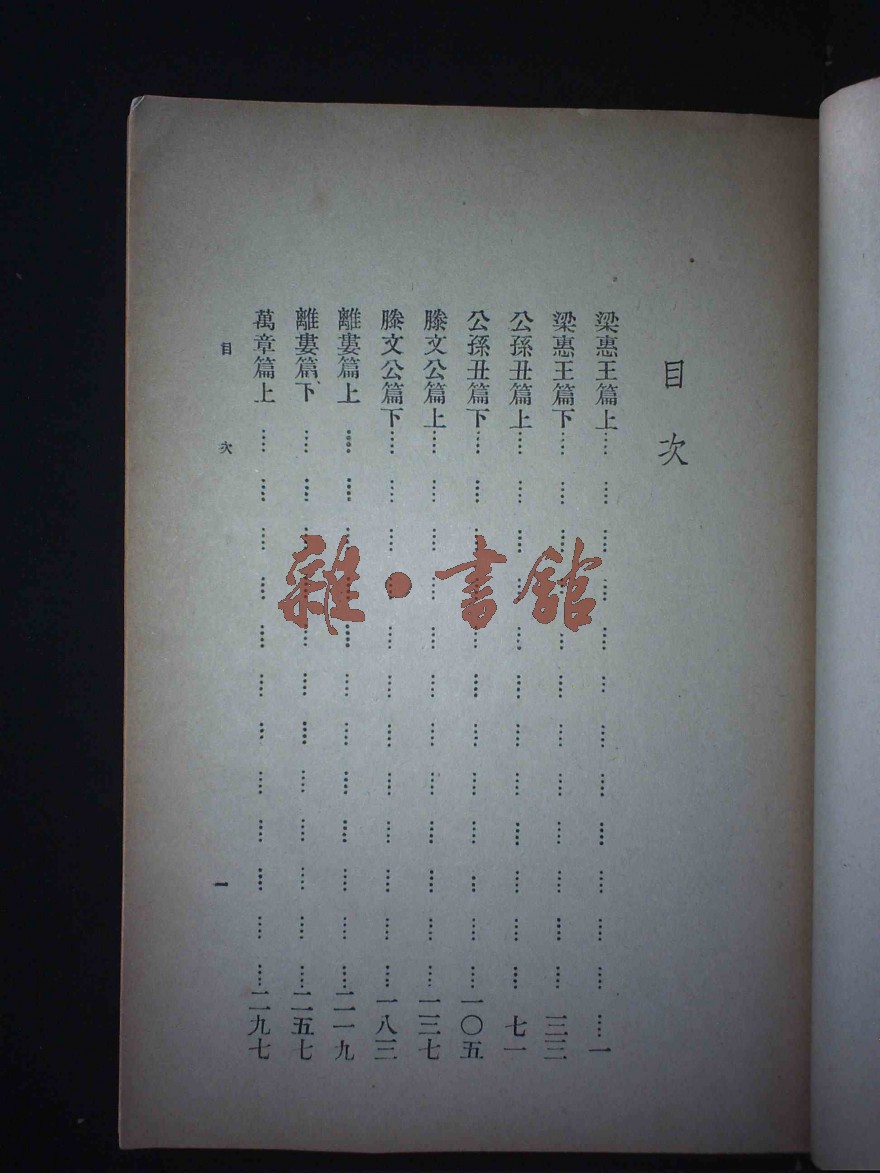 目次
梁惠王篇上…………一
梁惠王篇下…………三三
公孫丑篇上…………七一
公孫丑篇下…………一〇五
滕文公篇上…………一三七
滕文公篇下…………一八三
離婁篇上…………二一九
離婁篇下…………二五七
萬章篇上…………二九七
目次 一
雜·書館